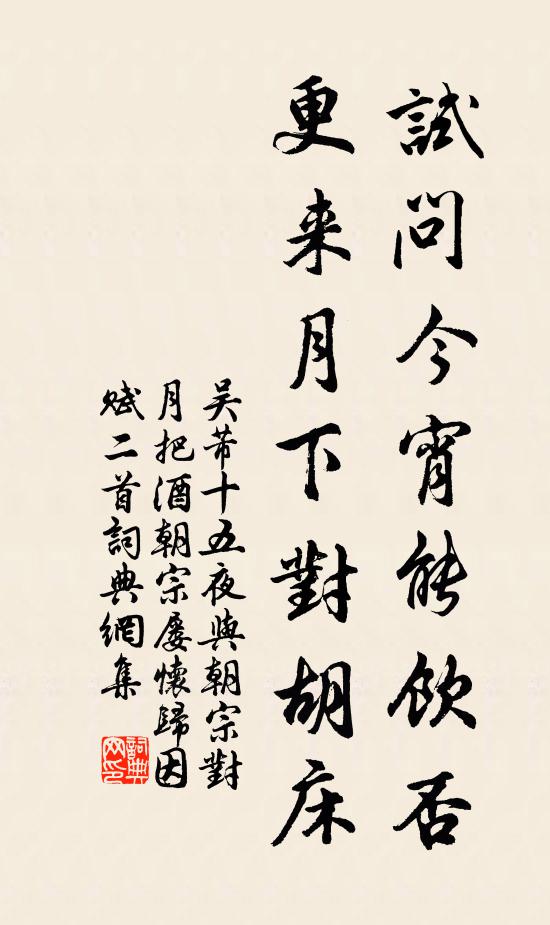 試問今宵能飲否
更来月下對胡床
吴芾十五夜與朝宗對
月把酒朝宗屡懷歸因
赋二首詞典網集
詞典网印